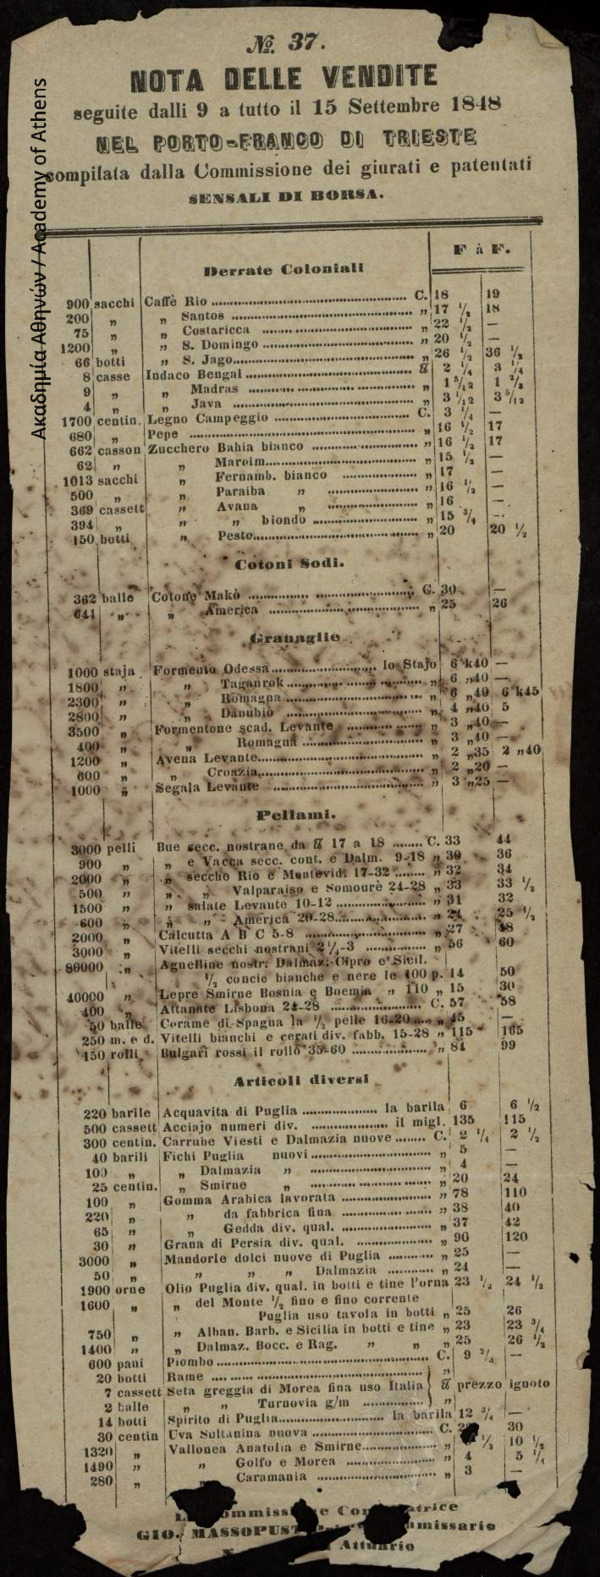 Ακαδημία Αθηνών / Academy of Athens
№. 37.
NOTA DELLE VENDITE
seguite dalli 9 a tutto il 15 Settembre 1848
NEL PORTO-FRANCO DI TRIESTE
compilata dalla Commissione dei giurati e patentati
SENSALI DI BORSA.
F à F.
Derrate Coloniali
900 sacchi Caffè Rio C. 18 19
200 „ „ Santos „ 17 ½ 18
75 „ „ Costaricca „ 22 ½ —
1200 „ „ S. Domingo „ 20 ½ —
66 botti „ S. Jago „ 26 ½ 36 ½
8 casse Indaco Bengal ℔ 2 ¼ 3 ¼
9 „ „ Madras „ 1 5/12 1 ⅔
4 „ „ Java „ 3 1/12 3 5/12
1700 centin. Legno Campeggio C. 3 ¼ —
680 „ Pepe „ 16 ½ 17
662 casson Zucchero Bahia bianco „ 16 ½ 17
62 „ „ Maroim „ 15 ½ —
1013 sacchi „ Fernamb. bianco „ 17 —
500 „ „ Paraiba „ „ 16 ½ —
369 cassett „ Avana „ „ 16 —
394 „ „ „ biondo „ 15 ¾ —
150 botti „ Pesto „ 20 20 ½
Cotoni Sodi.
362 balle Cotone Makò C. 30 —
644 „ „ America „ 25 26
Granaglie
1000 staja Formento Odessa lo Stajo 6 k40 —
1800 „ „ Taganrok „ 6 „40 —
2300 „ „ Romagna „ 6 „40 6 k45
2800 „ „ Danubio „ 4 „40 5
3500 „ Formentone scad. Levante „ 3 „40 —
400 „ „ Romagna „ 3 „40 —
1200 „ Avena Levante „ 2 „35 2 „40
600 „ „ Croazia „ 2 „20 —
1000 „ Segala Levante „ 3 „25 —
Pellami.
3000 pelli Bue secc. nostrane da ℔ 17 a 18 C. 33 44
900 „ „ e Vacca secc. cont. e Dalm. 9-18 „ 30 36
2000 „ „ secche Rio e Montevidi 17-32 „ 32 34
500 „ „ „ Valparaiso e Somourè 24-28 „ 33 33 ½
1500 „ „ salate Levante 10-12 „ 31 32
600 „ „ „ America 20-28 „ 24 25 ½
2000 „ Calcutta A B C 5-8 „ 27 48
3000 „ Vitelli secchi nostrani 2 ¼-3 „ 56 60
80000 „ Agnelline nostr. Dalmaz. Cipro e Sicil.
½ concie bianche e nere le 100 p. 14 50
40000 „ Lepre Smirne Bosnia e Boemia „ 110 „ 15 30
400 „ Altanate Lisbona 24-28 C. 57 58
50 balle Corame di Spagna la ½ pelle 16-20 „ 45 —
250 m. e d. Vitelli bianchi e cerati div. fabb. 15-28 „ 115 165
150 rolli Bulgari rossi il rollo 35-60 „ 84 99
Articoli diversi
220 barile Acquavita di Puglia la barila 6 6 ½
500 cassett Acciajo numeri div. il migl. 135 115
300 centin. Carrube Viesti e Dalmazia nuove C. 2 ¼ 2 ½
40 barili Fichi Puglia nuovi „ 5 —
100 „ „ Dalmazia „ „ 4 —
25 centin. „ Smirne „ „ 20 24
100 „ Gomma Arabica lavorata „ 78 110
220 „ „ da fabbrica fina „ 38 40
65 „ „ Gedda div. qual. „ 37 42
30 „ Grana di Persia div. qual. „ 90 120
3000 „ Mandorle dolci nuove di Puglia „ 25 —
50 „ „ „ „ Dalmazia „ 24 —
1900 orne Olio Puglia div. qual. in botti e tine l'orna 23 ½ 24 ½
1600 „ „ del Monte ½ fino e fino corrente
Puglia uso tavola in botti „ 25 26
750 „ „ Alban. Barb. e Sicilia in botti e tine „ 23 23 ¾
1400 „ „ Dalmaz. Bocc. e Rag. „ „ „ 25 26 ½
600 pani Piombo C. 9 ⅔ —
20 botti Rame „
7 cassett Seta greggia di Morea fina uso Italia ℔ prezzo ignoto
2 balle „ „ Turnovia g/m „
14 botti Spirito di Puglia la barila 12 ¾ —
30 centin Uva Sultanina nuova C. 30
1320 „ Vallonea Anatolia e Smirne ½ 10 ½
1490 „ „ Golfo e Morea „ 4 5 ¼
280 „ „ Caramania „ 3 —
GIO. MASSOPUST
Attuario